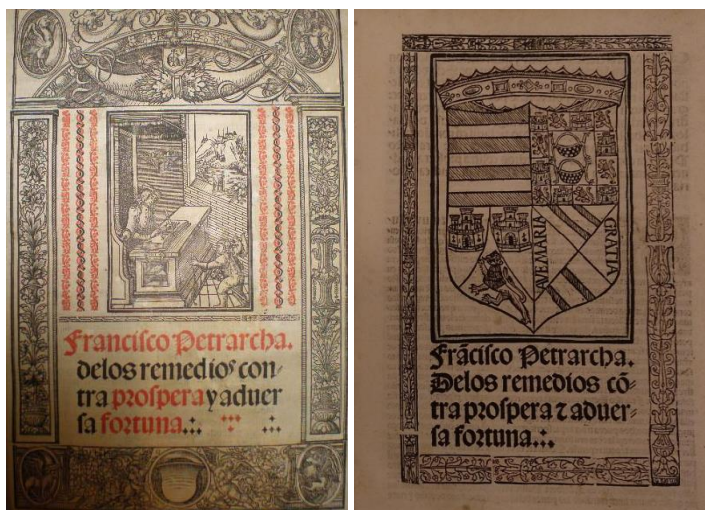 Francisco Petrarcha.
delos remedios con-
tra prospera y aduer
sa fortuna.
AVE MARIA
GRATIA
Frãcisco Petrarcha.
Delos remedios cõ-
tra prospera ⁊ aduer-
sa fortuna.